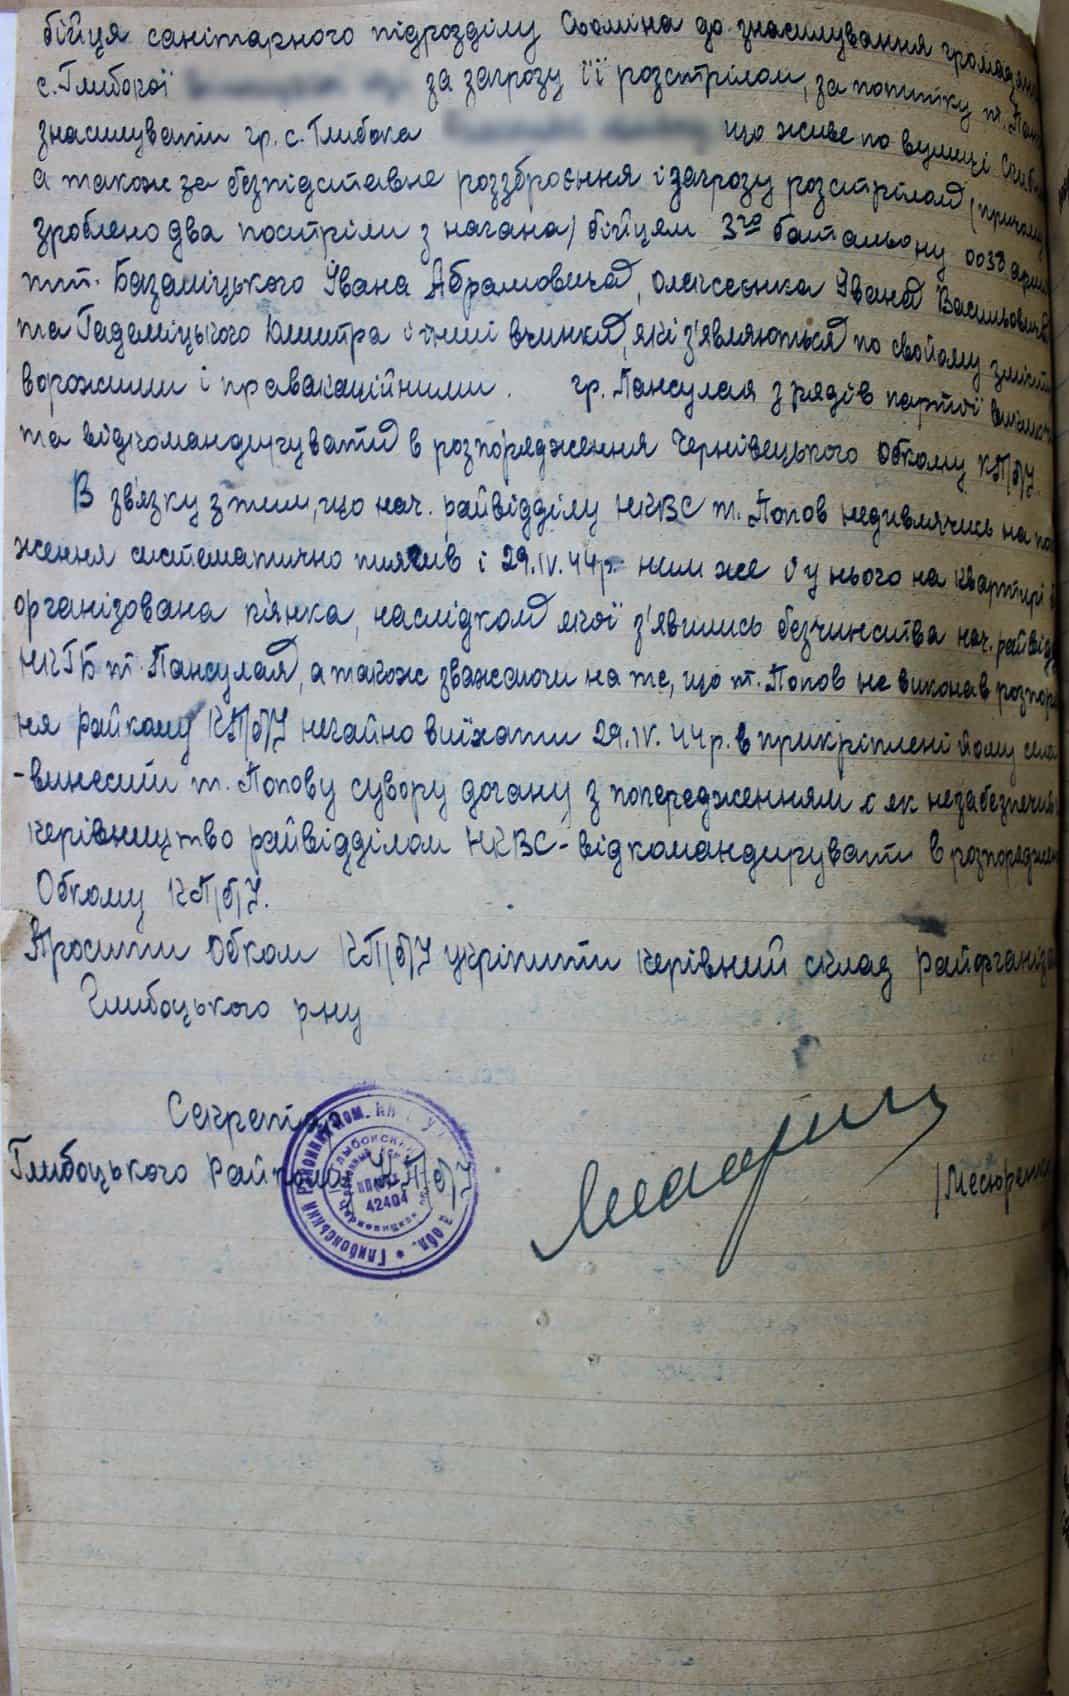 бійця санітарного підрозділу Сьоміна до знасилування громадянки
с. Глибокої за загрозу її розстрілом, за попитку т. Панс
знасилувати гр. с. Глибока що живе по вулиці
а також за безпідставне роззброєння і загрозу розстрілом (причому
зроблено два постріли з нагана) бійцям 3го батальону 0038 армії
т.т. Базаліцького Івана Абрамовича, Олексеєнка Івана Васильовича
та Гадаміцького Дмитра і інші вчинки, які з'являються по свойому змісту
ворожими і правакаційними. гр. Пансулая з рядів партії виключ
та відкомандирувати в розпорядження Чернівецького Обкому КП/б/У.
В звязку з тим, що нач. райвідділу НКВС т. Попов недивлячись на попе
ження систематично пиячив і 29.IV.44р. ним же і у нього на квартирі
організована п'янка, наслідком якої з'явились безчинства нач. райвідд
НКГБ т. Пансулая, а також зважаючи на те, що т. Попов не виконав розпоря
ня райкому КП/б/У негайно виїхати 29.IV.44р. в прикріплені йому села
-винести т. Попову сувору догану з попередженням і як незабезпечив
керівництво райвідділом НКВС - відкомандирувати в розпоряджен
Обкому КП/б/У.
Просити Обком КП/б/У укріпити керівний склад райорганіза
Глибоцького р-ну
Секретар
Глибоцького Райкома КП/б/У
/Месюренко
Глибокский
42404